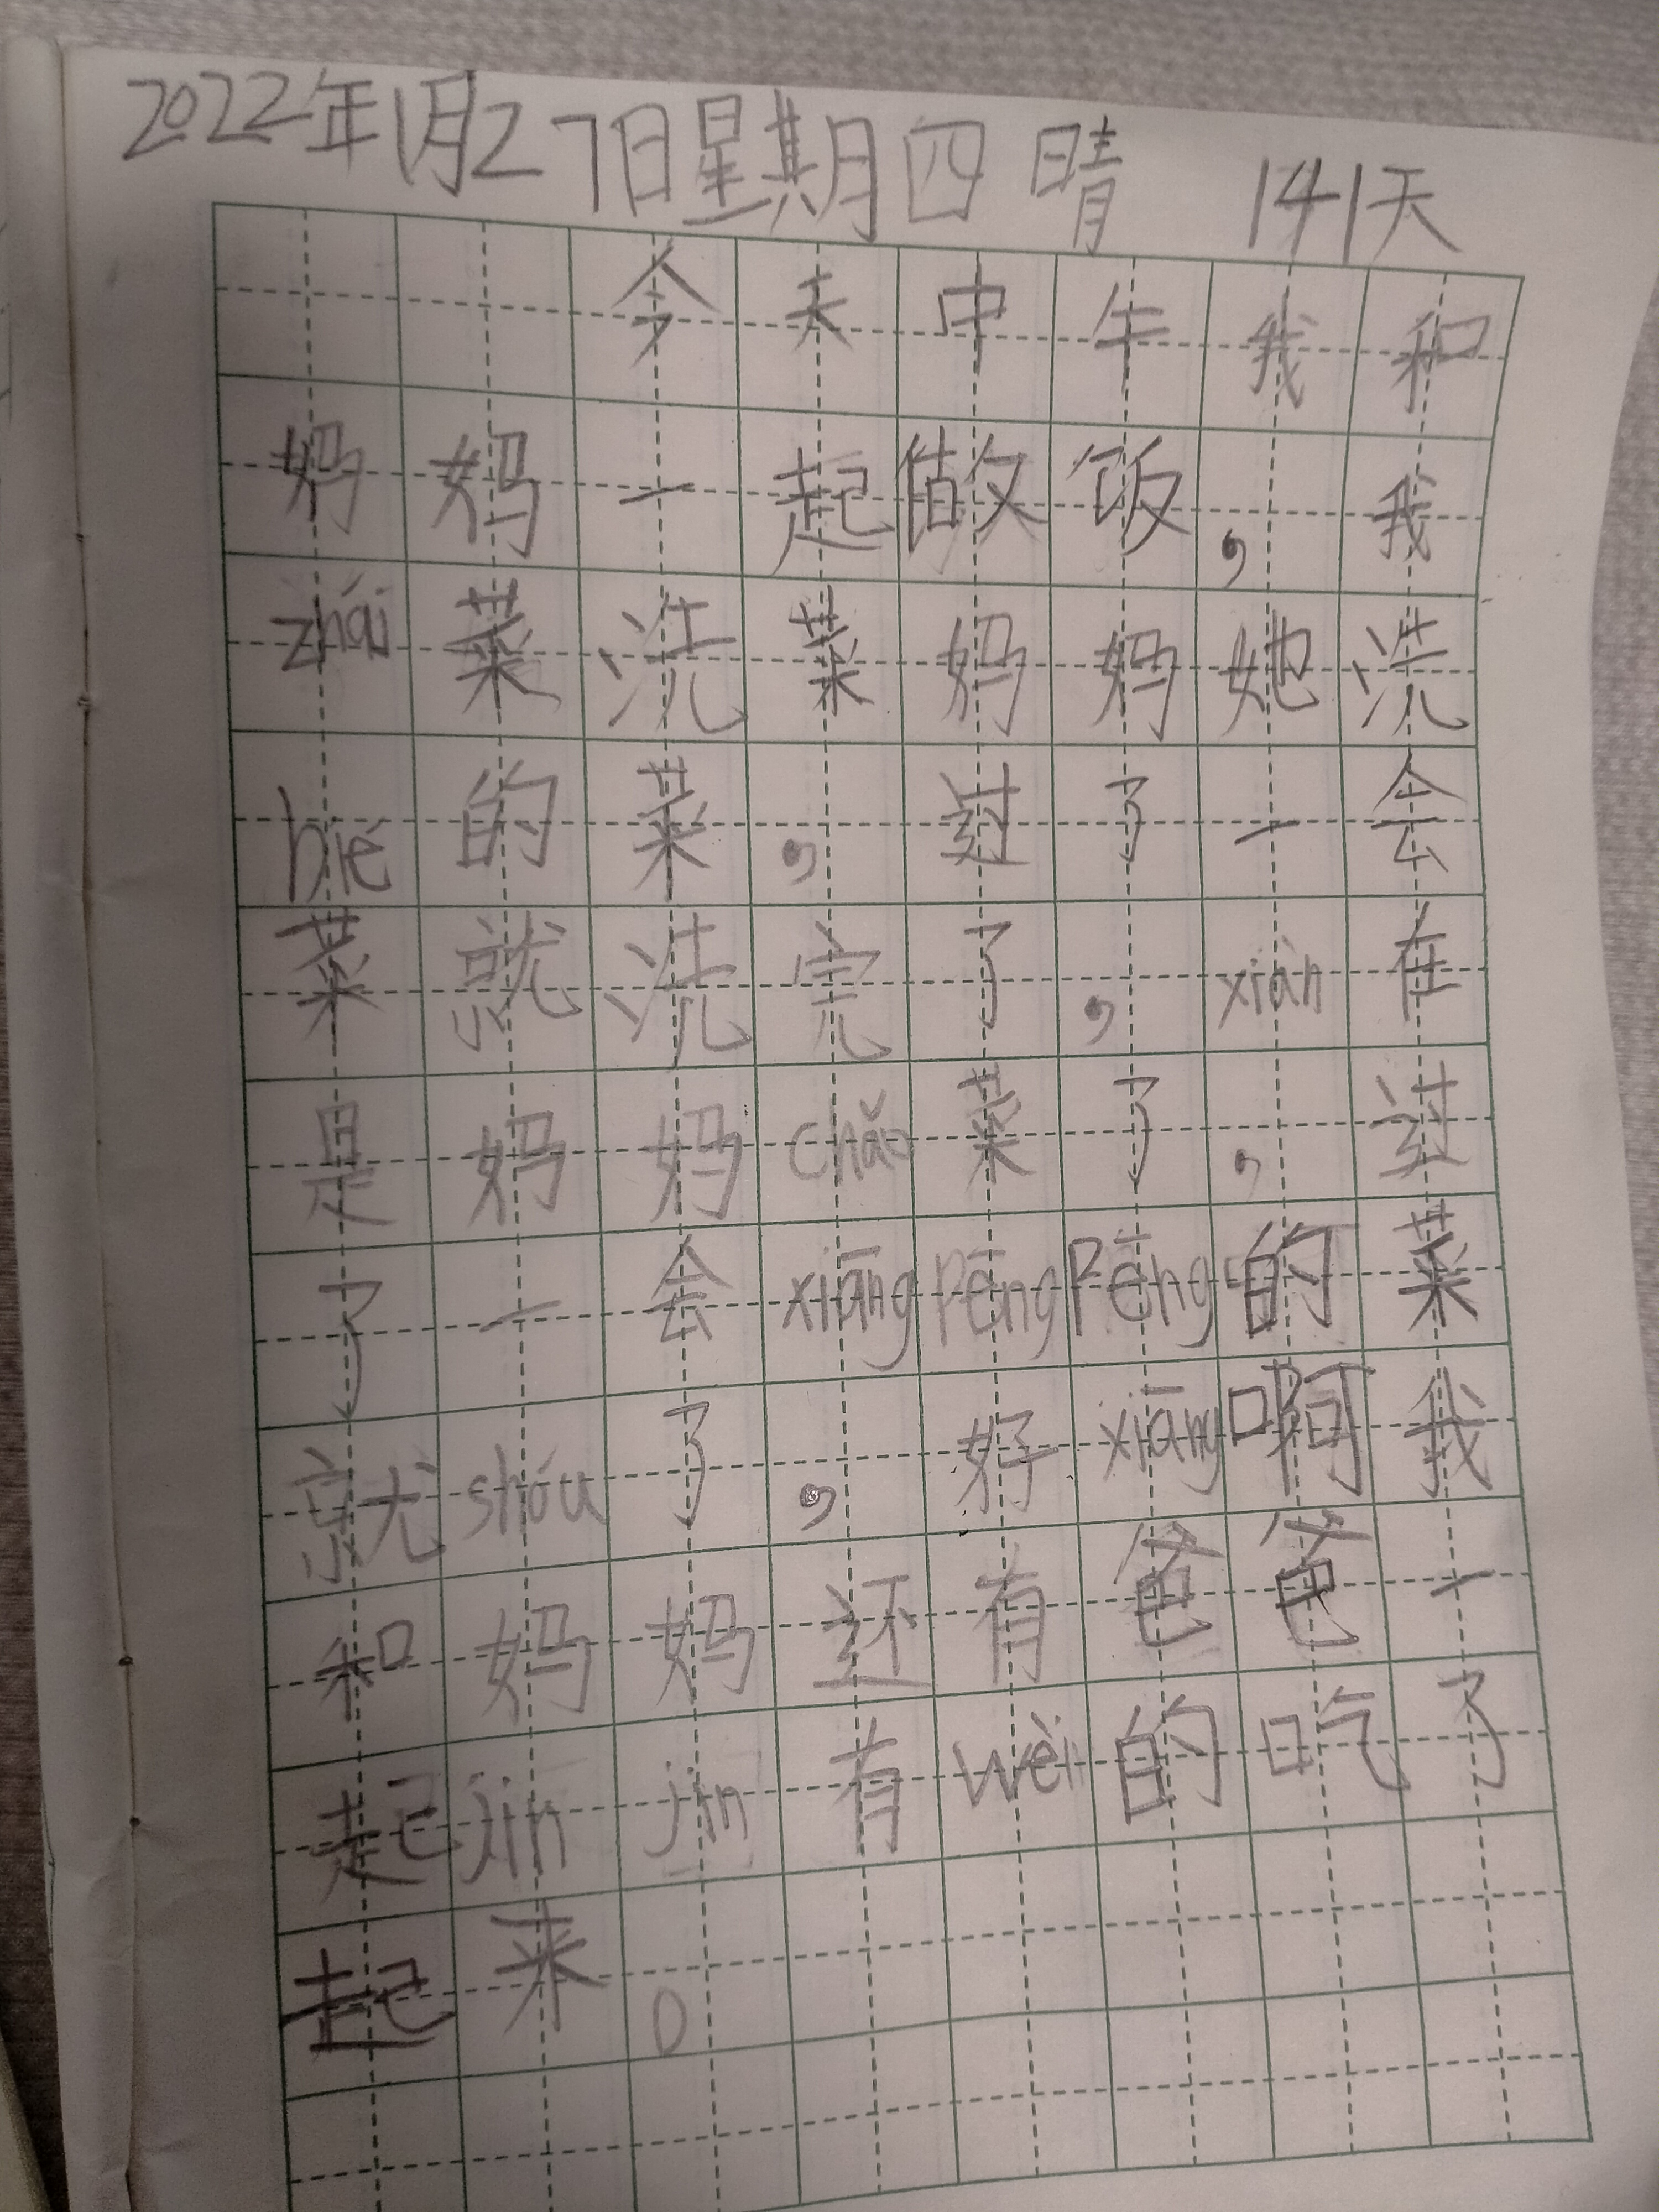 2022年1月27日星期四 晴 141天
今天中午我和
妈妈一起做饭，我
zhái菜洗菜妈妈她洗
bié的菜，过了一会
菜就洗完了，xiàn在
是妈妈chǎo菜了，过
了一会xiāngPēngPēng的菜
就shóu了，好xiāng啊我
和妈妈还有爸爸一
起jīnjīn有wèi的吃了
起来。